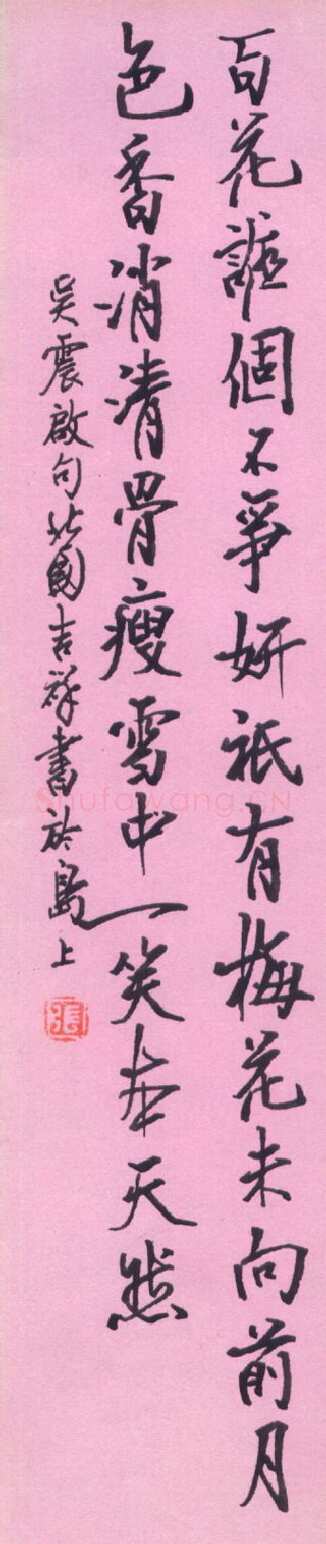 百花誰個不爭妍祇有梅花未向前月
色香消清骨瘦雪中一笑本天然
吳震啟句北國吉祥書於島上
張
Shufawang.CN